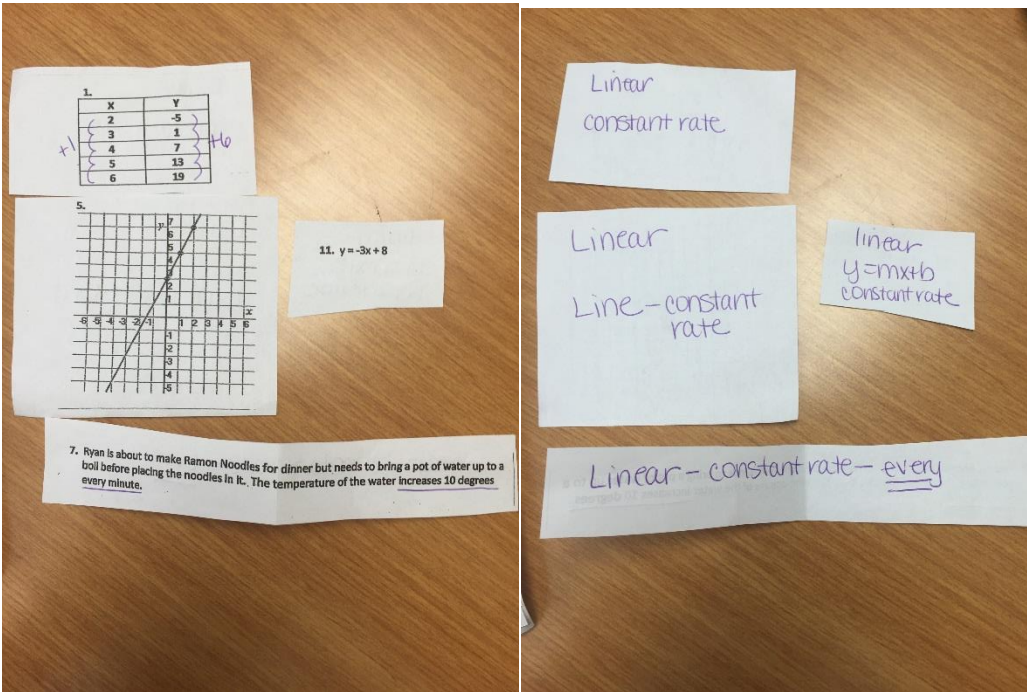 1.
X Y
2 -5
3 1
4 7
5 13
6 19
+1 +6
5.
y 7
6
5
4
3
2
1
x
-6 -5 -4 -3 -2 -1 1 2 3 4 5 6
-1
-2
-3
-4
-5
11. y = -3x + 8
7. Ryan is about to make Ramon Noodles for dinner but needs to bring a pot of water up to a
boil before placing the noodles in it. The temperature of the water increases 10 degrees
every minute.
Linear
constant rate
Linear
Line - constant
rate
linear
y=mx+b
constant rate
Linear - constant rate - every